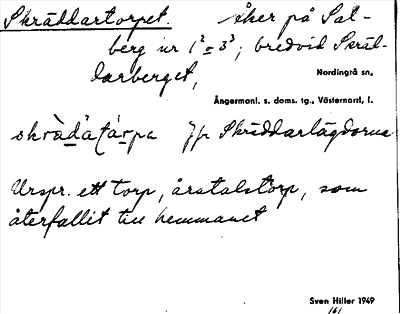 Skräddartorpet. Åker på Sal-
berg nr 1² = 3³; bredvid Skräd-
darberget,
Nordingrå sn,
Ångermanl. s. doms. tg., Västernorrl. l.
skrä̀dàtárpa Jfr Skräddarlägdorna
Urspr. ett torp, årstalstorp, som
återfallit till hemmanet
Sven Hiller 1949
161